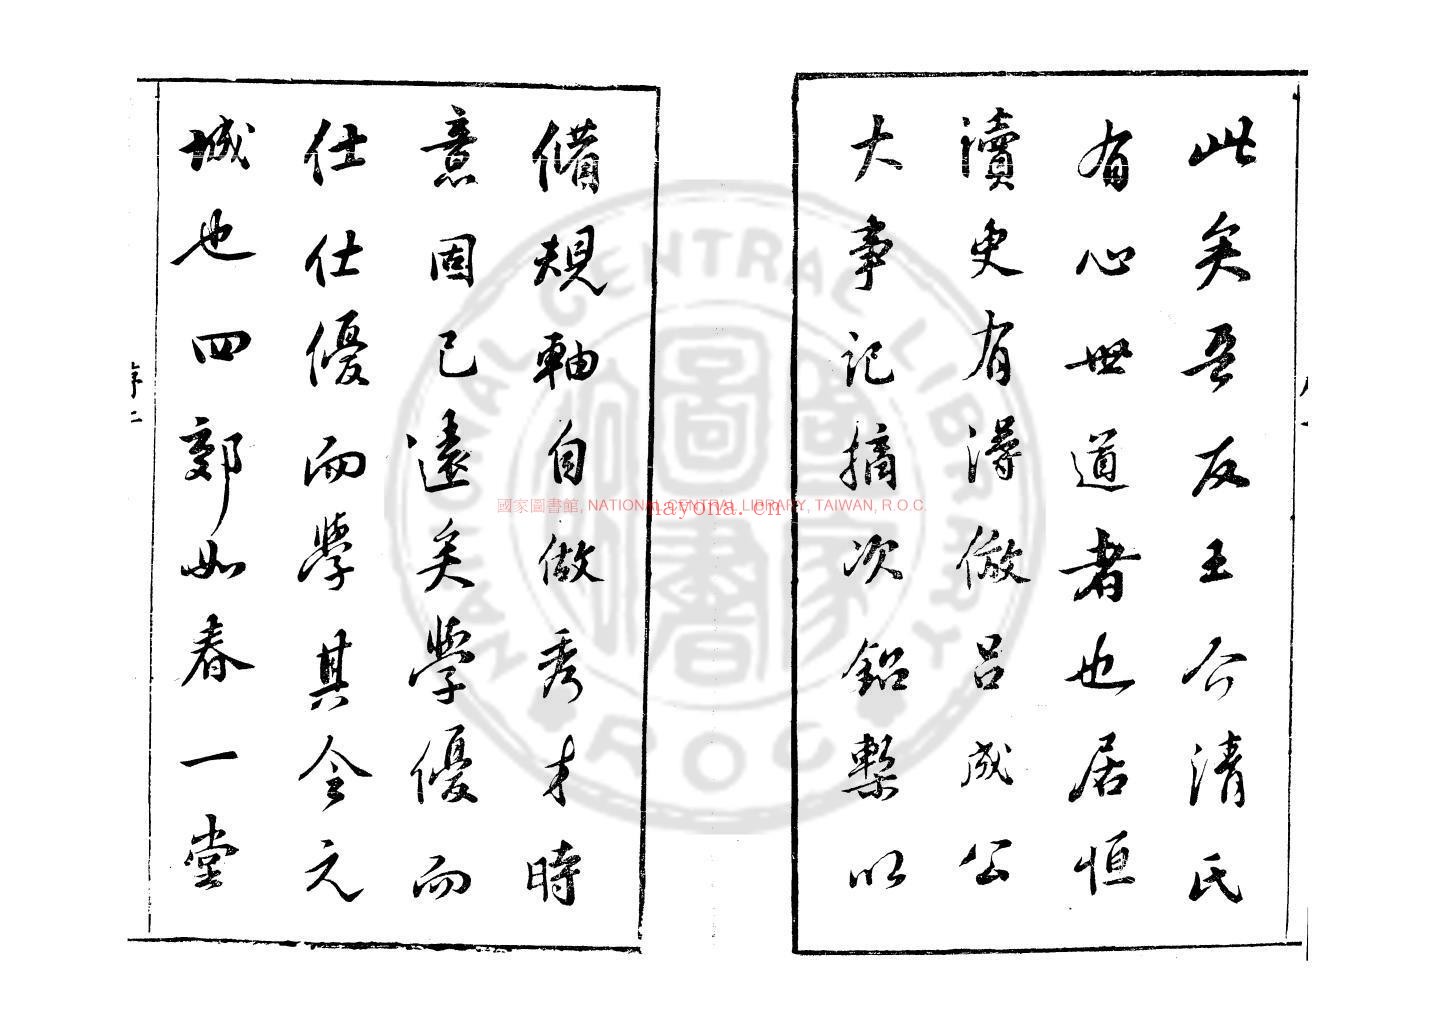 此矣吾友王介清氏
有心世道者也居恒
讀史有得倣呂成公
大事記摘次鉛槧以
備規軸自做秀才時
意固已遠矣學優而
仕仕優而學其令元
城也四郊如春一堂
序二
NATIONAL CENTRAL LIBRARY
R O C
國家圖書館
國家圖書館, NATIONAL CENTRAL LIBRARY, TAIWAN, R.O.C.
nayona.cn